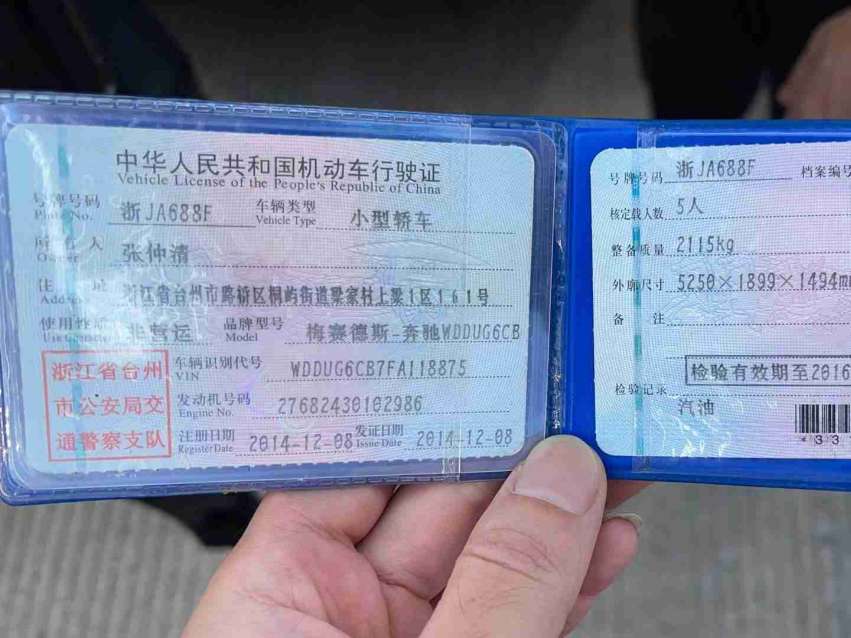 中华人民共和国机动车行驶证
Vehicle License of the People's Republic of China
号牌号码 浙JA688F 车辆类型 小型轿车
Plate No. Vehicle Type
所有人 张仲清
Owner
住址 浙江省台州市路桥区桐屿街道梁家村上梁1区161号
Address
使用性质 非营运 品牌型号 梅赛德斯-奔驰WDDUG6CB
Use Character Model
浙江省台州
市公安局交
通警察支队
车辆识别代号 WDDUG6CB7FA118875
VIN
发动机号码 27682430102986
Engine No.
注册日期 2014-12-08 发证日期 2014-12-08
Register Date Issue Date
号牌号码 浙JA688F 档案编号
核定载人数 5人
整备质量 2115kg
外廓尺寸 5250×1899×1494mm
备注
检验有效期至2016
检验记录
汽油
*331